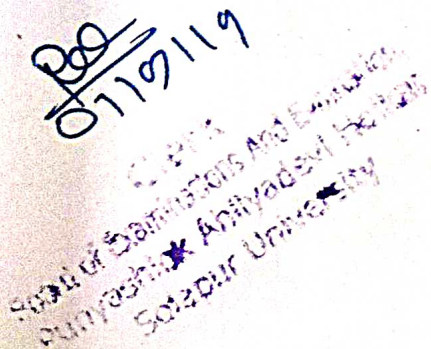 01/10/119
Clerk
Board of Examinations And Evaluation
Punyashlok Ahilyadevi Holkar
Solapur University